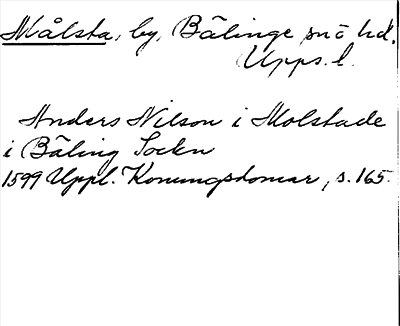 Målsta, by, Bälinge sn o hd.
Upps. l.
Anders Nilson i Molstade
i Bäling Sockn
1599 Uppl. Konungsdomar, s. 165.